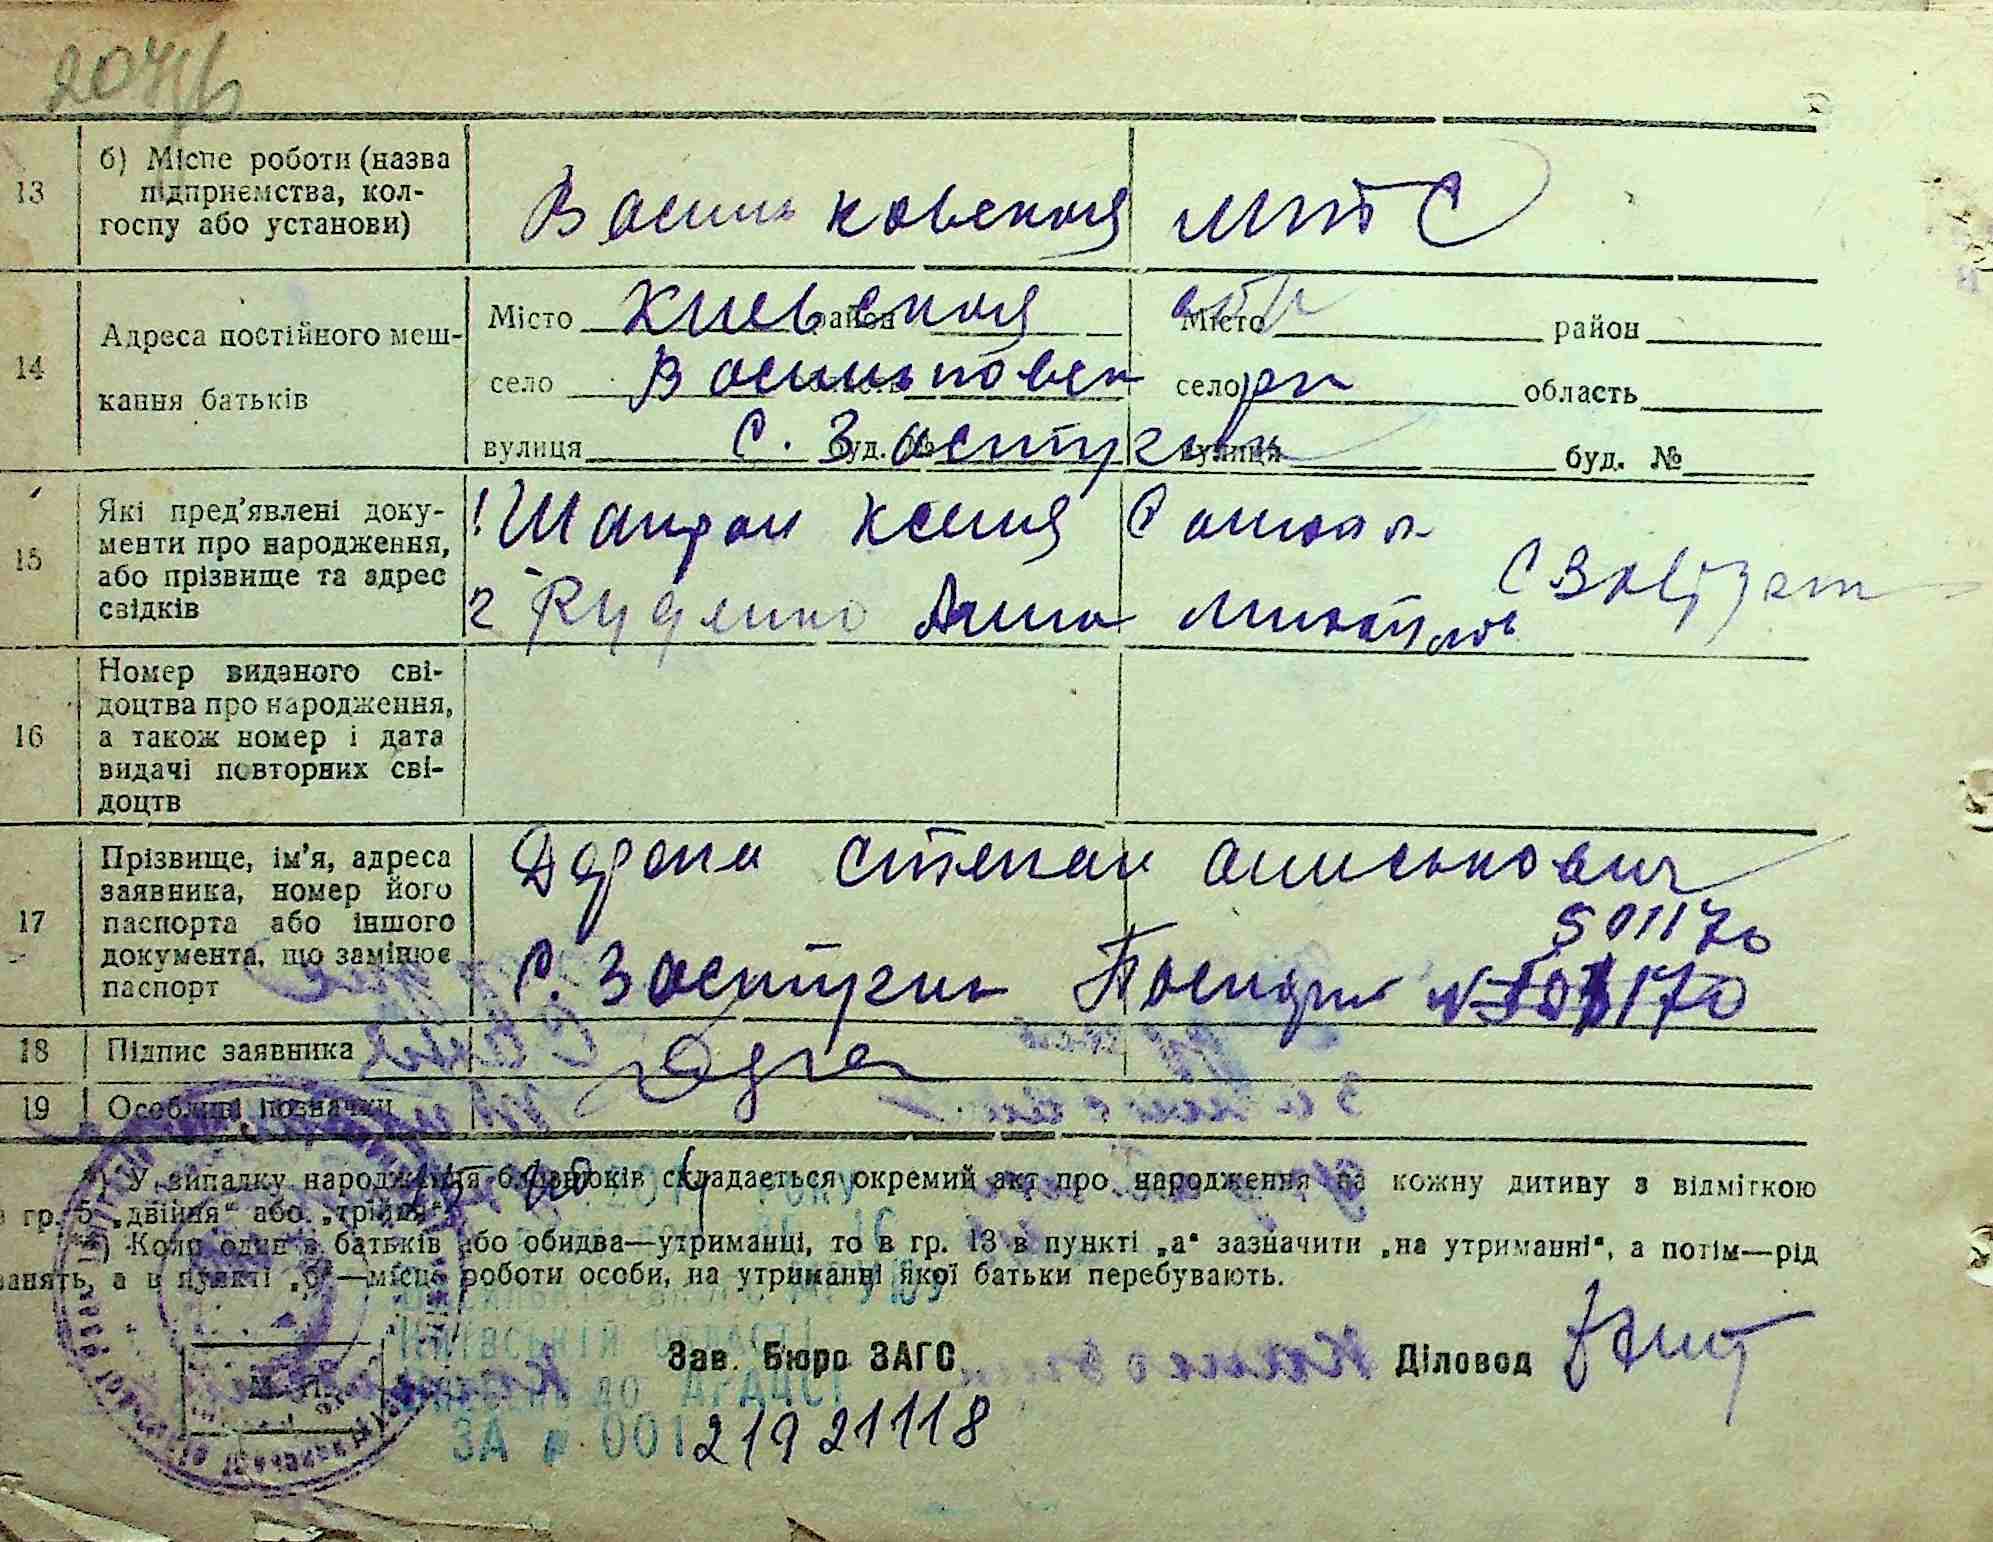 13
б) Місце роботи (назва
підприємства, кол-
госпу або установи)
Васильковская МТС
14
Адреса постійного меш-
кання батьків
Місто район
Киевская обл
Місто район
село область
Васильковск рн
село область
вулиця буд. №
С. Застугна
вулиця буд. №
15
Які пред'явлені доку-
менти про народження,
або прізвище та адрес
свідків
1 Ксения
2 Руденко Анна
16
Номер виданого сві-
доцтва про народження,
а також номер і дата
видачі повторних сві-
доцтв
17
Прізвище, ім'я, адреса
заявника, номер його
паспорта або іншого
документа, що замінює
паспорт
Степан
501170
С. Застугна Паспорт №
18
Підпис заявника
19
Особливі позначки
) У випадку народження близнюків складається окремий акт про народження на кожну дитину з відміткою
гр. 5 „двійня“ або „трійня“
) Коли один з батьків або обидва—утриманці, то в гр. 13 в пункті „а“ зазначити „на утриманні“, а потім—рід
занять, а в пункті „б“—місце роботи особи, на утриманні якої батьки перебувають.
Київській області
Зав. Бюро ЗАГС
Діловод
М. П.
до ДРАЦСГ
ЗА № 00121921118